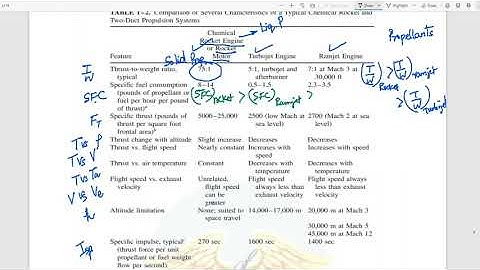 TABLE 1–2. Comparison of Several Characteristics of a Typical Chemical Rocket and
Two-Duct Propulsion Systems
Liq. P
Propellants
Solid Prop
Feature
Chemical
Rocket Engine
or Rocket
Motor
Turbojet Engine
Ramjet Engine
T/W
Thrust-to-weight ratio, typical
75:1
5:1, turbojet and afterburner
7:1 at Mach 3 at 30,000 ft
(T/W) Rocket > (T/W) Ramjet > (T/W) Turbojet
SFC
Specific fuel consumption (pounds of propellant or fuel per hour per pound of thrust)a
8–14
0.5–1.5
2.3–3.5
(SFC) Rocket > (SFC) Ramjet >
Specific thrust (pounds of thrust per square foot frontal area)b
5000–25,000
2500 (low Mach at sea level)
2700 (Mach 2 at sea level)
Thrust change with altitude
Slight increase
Decreases
Decreases
T vs V
Thrust vs. flight speed
Nearly constant
Increases with speed
Increases with speed
T vs Ta
Thrust vs. air temperature
Constant
Decreases with temperature
Decreases with temperature
V vs Ve
Flight speed vs. exhaust velocity
Unrelated, flight speed can be greater
Flight speed always less than exhaust velocity
Flight speed always less than exhaust velocity
h
Altitude limitation
None; suited to space travel
14,000–17,000 m
20,000 m at Mach 3
30,000 m at Mach 5
45,000 m at Mach 12
Isp
Specific impulse, typical (thrust force per unit propellant or fuel weight flow per second)
270 sec
1600 sec
1400 sec